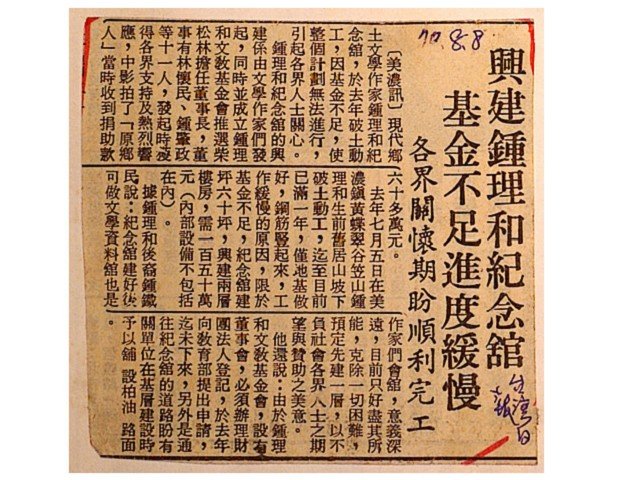 興建鍾理和紀念舘
基金不足進度緩慢
各界關懷期盼順利完工
70.8.8
〔美濃訊〕現代鄉
土文學作家鍾理和紀
念舘，於去年破土動
工，因基金不足，使
整個計劃無法進行，
引起各界人士關心。
鍾理和紀念舘的興
建係由文學作家們發
起，同時並成立鍾理
和文敎基金會推選柴
松林擔任董事長，董
事有林懷民、鍾肇政
等十一人，發起時
得各界支持及熱烈響
應，中影拍了「原鄉
人」當時收到捐助款
六十多萬元。
去年七月五日在美
濃鎭黃蝶翠谷笠山鍾
理和生前舊居山坡下
破土動工，迄至目前
已滿一年，僅地基做
好，鋼筋豎起來，工
作緩慢的原因，限於
基金不足，紀念舘建
坪六十坪，興建兩層
樓房，需一百五十萬
元（內部設備不包括
在內）。
據鍾理和後裔鍾鐵
民說：紀念舘建好後
可做文學資料舘也是
作家們會舘，意義深
遠，目前只好盡其所
能，克除一切困難，
預定先建一層，以不
負社會各界人士之期
望與贊助之美意。
他還說：由於鍾理
和文敎基金會，設有
董事會，必須辦理財
團法人登記，於去年
向敎育部提出申請，
迄未下來，另外是通
往紀念舘的道路盼有
關單位在基層建設時
予以舖設柏油路面
。